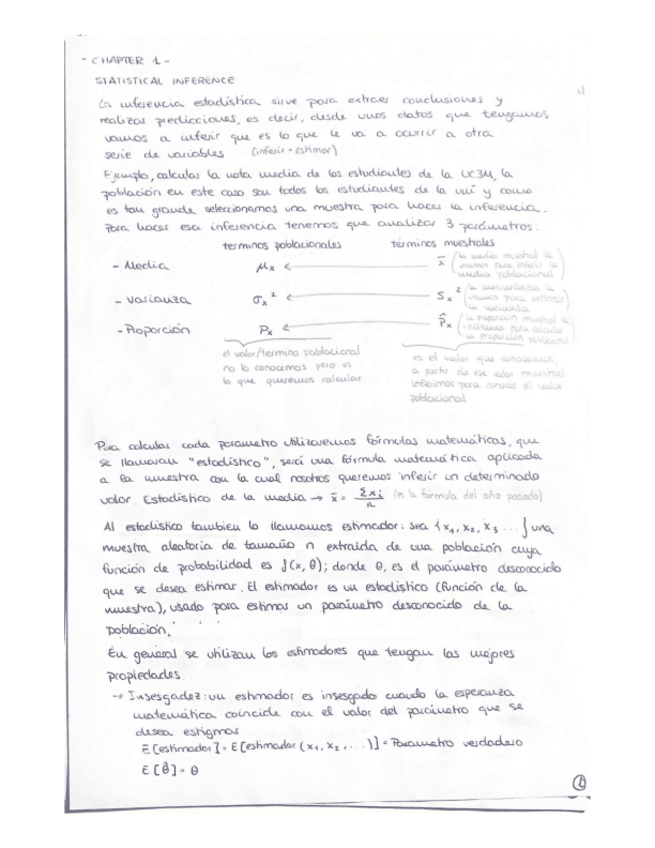 - CHAPTER 1 -
STATISTICAL INFERENCE
La inferencia estadística sirve para extraer conclusiones y
realizar predicciones, es decir, desde unos datos que tengamos
vamos a inferir que es lo que le va a ocurrir a otra
serie de variables (inferir = estimar)
Ejemplo, calcular la nota media de los estudiantes de la UC3M, la
población en este caso son todos los estudiantes de la uni y como
es tan grande seleccionamos una muestra para hacer la inferencia.
Para hacer esa inferencia tenemos que analizar 3 parámetros:
términos poblacionales términos muestrales
- Media μx ← x̄ (la media muestral la usamos para inferir la media poblacional)
- Varianza σx² ← Sx² (la usamos para estimar la varianza)
- Proporción Px ← P̂x (la proporción muestral la utilizamos para calcular la proporción poblacional)
el valor/termino poblacional
no lo conocemos pero es
lo que queremos calcular
es el valor que conocemos,
a partir de ese valor muestral
inferimos para conocer el valor
poblacional
Para calcular cada parametro utilizaremos fórmulas matemáticas, que
se llamaran "estadístico", será una fórmula matemática aplicada
a la muestra con la cual nosotros queremos inferir un determinado
valor. Estadístico de la media → x̄ = Σxi/n (es la fórmula del año pasado)
Al estadístico tambien lo llamamos estimador: sea {x1, x2, x3 ...} una
muestra aleatoria de tamaño n extraída de una población cuya
función de probabilidad es f(x, θ); donde θ, es el parámetro desconocido
que se desea estimar. El estimador es un estadístico (función de la
muestra), usado para estimar un parámetro desconocido de la
población.
En general se utilizan los estimadores que tengan las mejores
propiedades.
→ Insesgadez: un estimador es insesgado cuando la esperanza
matemática coincide con el valor del parámetro que se
desea estigmar
E[estimador] = E[estimador (x1, x2, ...)] = Parametro verdadero
E[θ̂] = θ
1